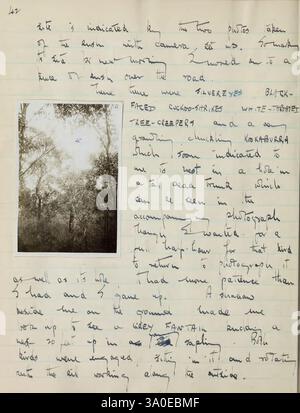 42
site is indicated by the two photos taken
of the bush with camera set up. So much
to see next morning I moved on to a
area of bush over the road.
Here there were SILVEREYES BLACK-
FACED CUCKOO-SHRIKES WHITE-THROATED
TREE-CREEPERS and a very
chuckling KOOKABURRA
which soon indicated to
me its nest in a hole in
a dead which
can be seen in the
accompanying photograph
though I waited for a
full half-hour for that bird
to return to photograph it
as well as its hole it had more patience than
I had and I gave up. A shadow
beside me on the ground made me
look up to see a GREY FANTAIL a
nest so far up in a sapling. Both
birds were engaged, sitting in it and rotating
with the bill working along the outside.
alamy
Image ID: 3A0EBMF
www.alamy.com